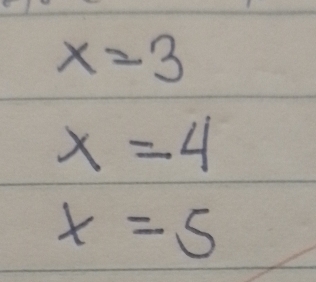 x=3
x=4
x=5